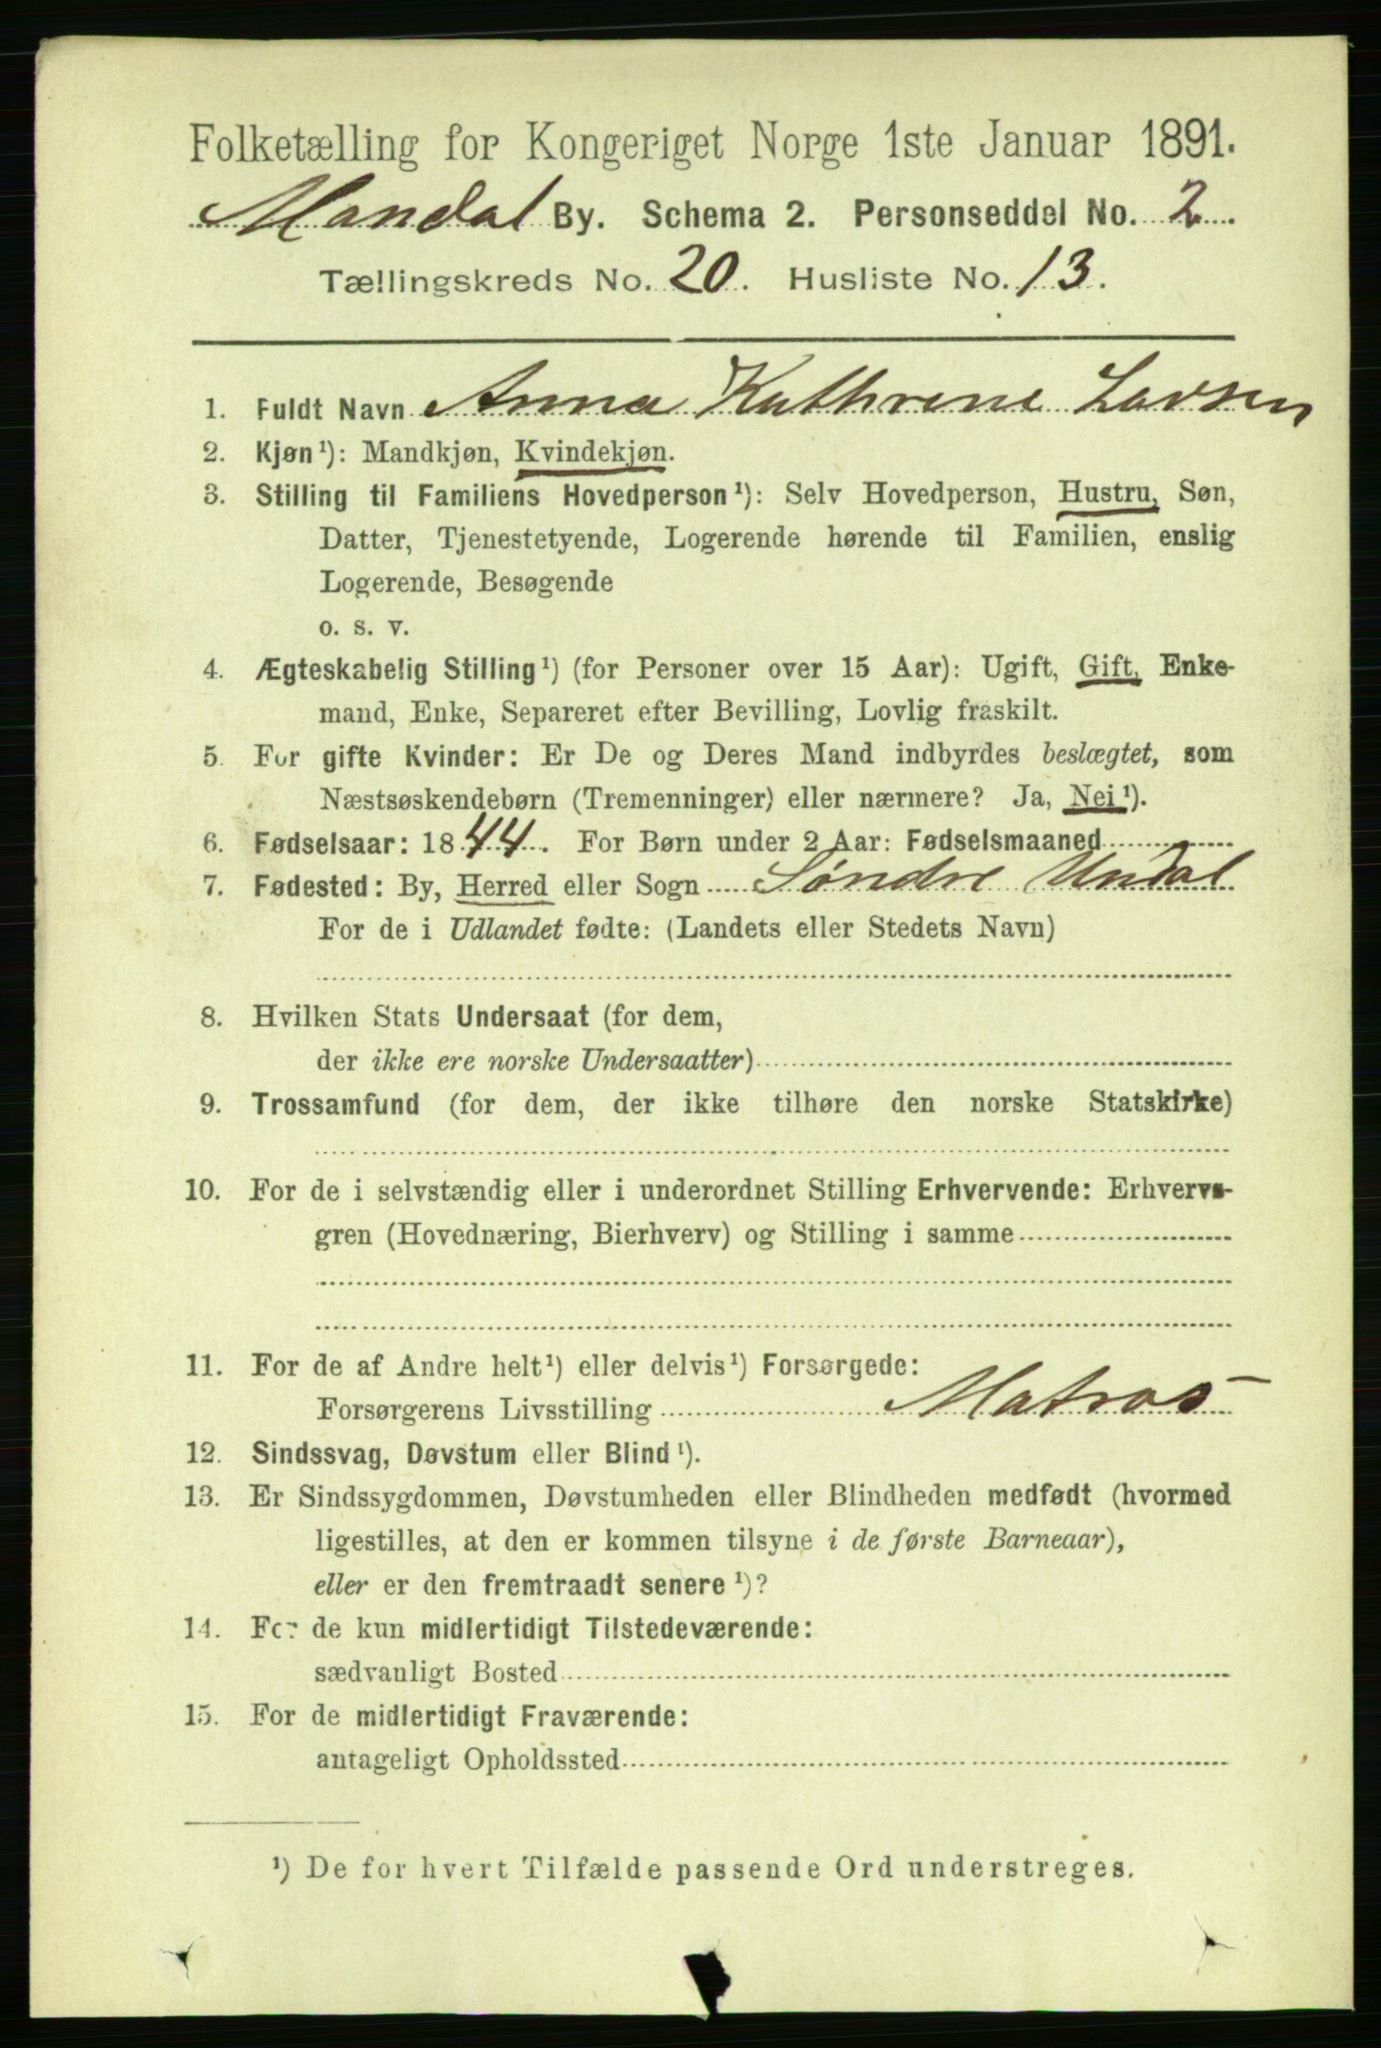 Folketælling for Kongeriget Norge 1ste Januar 1891.
Mandal By. Schema 2. Personseddel No. 2
Tællingskreds No. 20. Husliste No. 13.
1. Fuldt Navn Anna Kathrene Larsen
2. Kjøn¹): Mandkjøn, Kvindekjøn.
3. Stilling til Familiens Hovedperson¹): Selv Hovedperson, Hustru, Søn,
Datter, Tjenestetyende, Logerende hørende til Familien, enslig
Logerende, Besøgende
o. s. v.
4. Ægteskabelig Stilling¹) (for Personer over 15 Aar): Ugift, Gift, Enke-
mand, Enke, Separeret efter Bevilling, Lovlig fraskilt.
5. For gifte Kvinder: Er De og Deres Mand indbyrdes beslægtet, som
Næstsøskendebørn (Tremenninger) eller nærmere? Ja, Nei¹).
6. Fødselsaar: 1844. For Børn under 2 Aar: Fødselsmaaned
7. Fødested: By, Herred eller Sogn Søndre Undal
For de i Udlandet fødte: (Landets eller Stedets Navn)
8. Hvilken Stats Undersaat (for dem,
der ikke ere norske Undersaatter)
9. Trossamfund (for dem, der ikke tilhøre den norske Statskirke)
10. For de i selvstændig eller i underordnet Stilling Erhvervende: Erhvervs-
gren (Hovednæring, Bierhverv) og Stilling i samme
11. For de af Andre helt¹) eller delvis¹) Forsørgede:
Forsørgerens Livsstilling Matros
12. Sindssvag, Døvstum eller Blind¹).
13. Er Sindssygdommen, Døvstumheden eller Blindheden medfødt (hvormed
ligestilles, at den er kommen tilsyne i de første Barneaar),
eller er den fremtraadt senere¹)?
14. For de kun midlertidigt Tilstedeværende:
sædvanligt Bosted
15. For de midlertidigt Fraværende:
antageligt Opholdssted
¹) De for hvert Tilfælde passende Ord understreges.